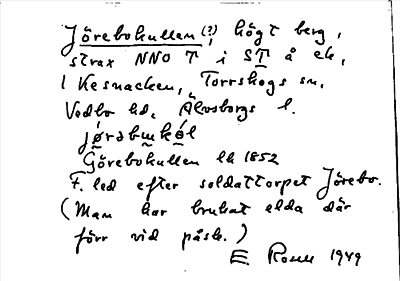 Jörebokullen (?), högt berg,
strax NNO T i ST å ek,
i Kesnacken, Torrskogs sn,
Vedbo hd, Älvsborgs l.
Görebokullen lk 1852
F. led efter soldattorpet Jörebo.
(Man har brukat elda där
förr vid påsk.)
E. Rosell 1949